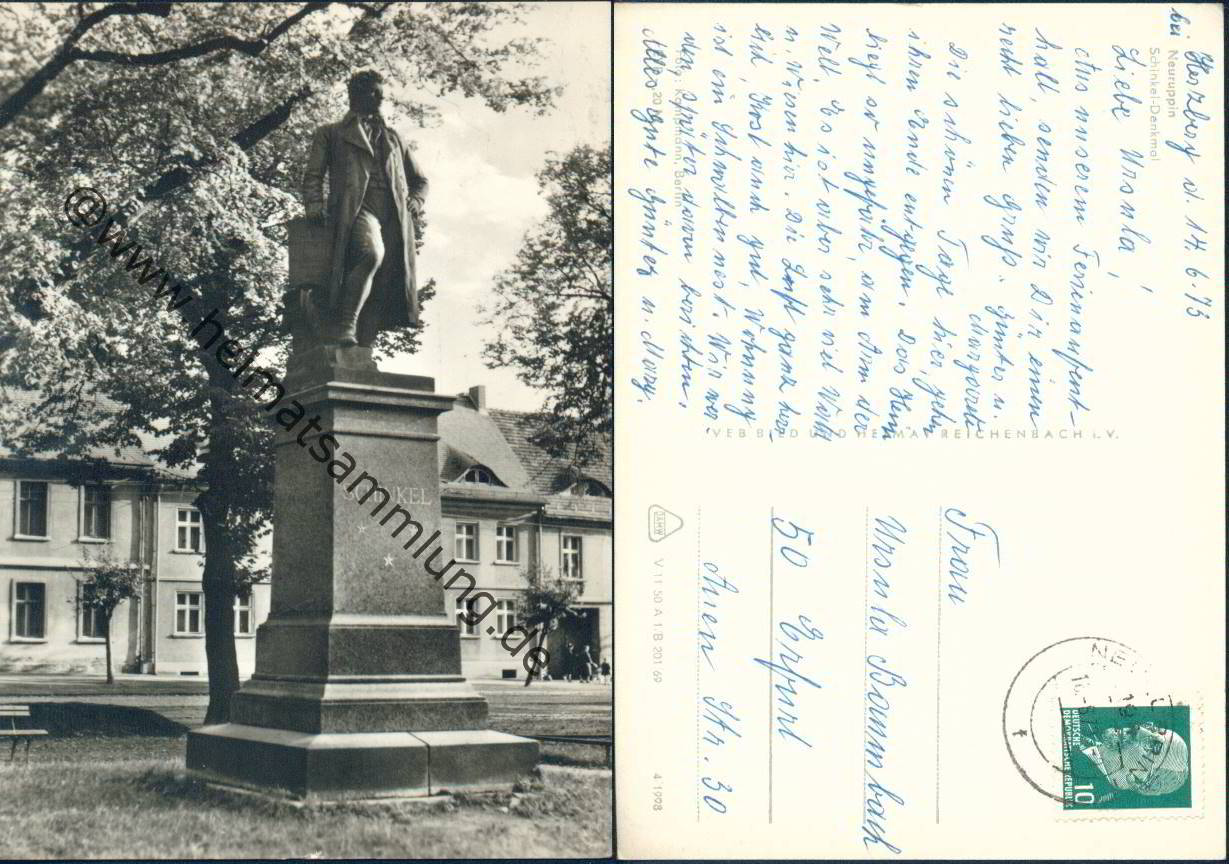 SCHINKEL
©www.heimatsammlung.de
Herzberg d. 14.6.73
bei Neuruppin
Schinkel-Denkmal
Liebe Ursula!
Aus unserem Ferienaufent-
halt, senden wir Dir einen
recht lieben Gruß. Günter u.
Margarete
Die schönen Tage hier, gehn
ihren Ende entgegen. Das
liegt so am Arm der
Welt. Es ist aber sehr viel Wald
u. Wiesen hier. Die Luft
sind Kost und gut, Wohnung
ist ein Schwalbennest. Wir
den später davon berichten.
Alles Gute Günter u. Marg.
Berlin
VEB BILD UND HEIMAT REICHENBACH i. V.
V 11 50 A 1/B 201 69
4 1998
Frau
Ursula Baumbach
50 Erfurt
Str. 30
DEUTSCHE
DEMOKRATISCHE REPUBLIK
10